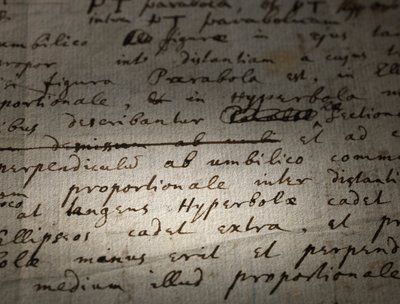 PT parabola, et PT
inter PT parabolam
umbilico figuræ in ejus
propor inter distantiam a cujus
figura Parabola est, in Elli
portionale, & in Hyperbola m
ibus describantur Sectioni
demissum ab umb et ad c
perpendiculū ab umbilico comm
proportionale inter distanti
at tangens Hyperbolæ cadet
Ellipseos cadet extra, et pr
bolæ minus erit et perpend
medium illud proportionale